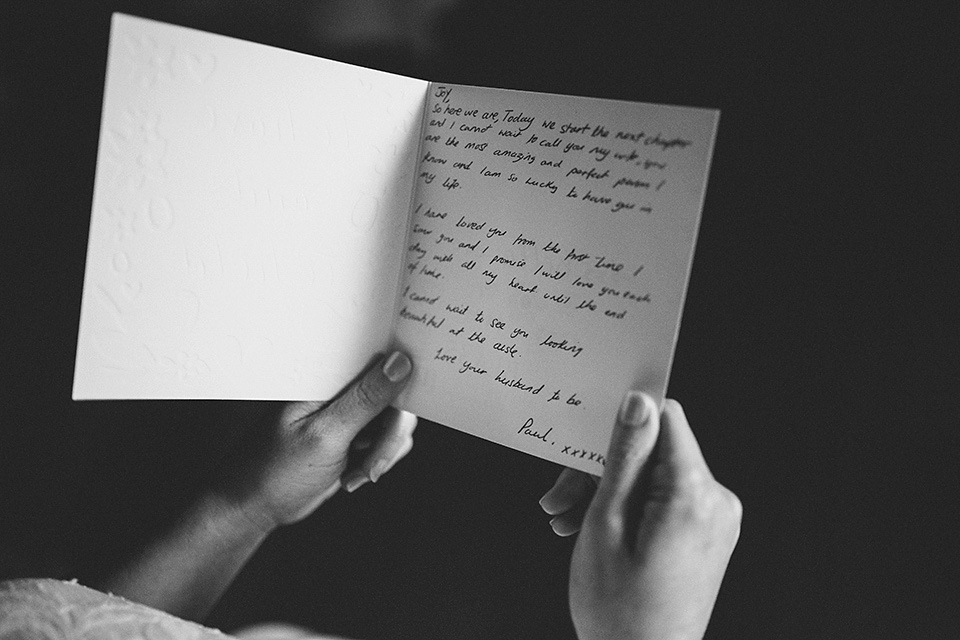 Joy,
So here we are, Today we start the next chapter
and I cannot wait to call you my wife, you
are the most amazing and perfect person I
know and I am so lucky to have you in
my life.
I have loved you from the first time I
saw you and I promise I will love you each
day with all my heart until the end
of time.
I cannot wait to see you looking
beautiful at the aisle.
Love your husband to be.
Paul. xxxxxx